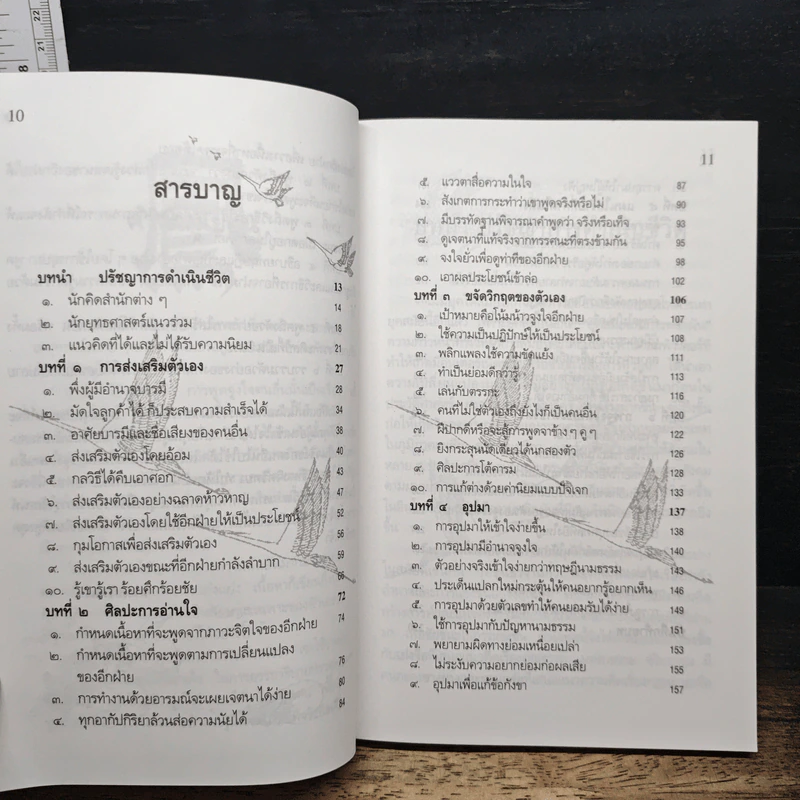 10
สารบาญ
บทนำ ปรัชญาการดำเนินชีวิต 13
๑. นักคิดสำนักต่าง ๆ 14
๒. นักยุทธศาสตร์แนวร่วม 18
๓. แนวคิดที่ได้และไม่ได้รับความนิยม 21
บทที่ ๑ การส่งเสริมตัวเอง 27
๑. พึ่งผู้มีอำนาจบารมี 28
๒. มัดใจลูกค้าได้ ก็ประสบความสำเร็จได้ 34
๓. อาศัยบารมีและชื่อเสียงของคนอื่น 38
๔. ส่งเสริมตัวเองโดยอ้อม 40
๕. กลวิธีได้คืบเอาศอก 43
๖. ส่งเสริมตัวเองอย่างฉลาดห้าวหาญ 47
๗. ส่งเสริมตัวเองโดยใช้อีกฝ่ายให้เป็นประโยชน์ 52
๘. กุมโอกาสเพื่อส่งเสริมตัวเอง 56
๙. ส่งเสริมตัวเองขณะที่อีกฝ่ายกำลังลำบาก 59
๑๐. รู้เขารู้เรา ร้อยศึกร้อยชัย 66
บทที่ ๒ ศิลปะการอ่านใจ 72
๑. กำหนดเนื้อหาที่จะพูดจากภาวะจิตใจของอีกฝ่าย 74
๒. กำหนดเนื้อหาที่จะพูดตามการเปลี่ยนแปลง
ของอีกฝ่าย 76
๓. การทำงานด้วยอารมณ์จะเผยเจตนาได้ง่าย 80
๔. ทุกอากัปกิริยาล้วนส่อความนัยได้ 84
11
๕. แววตาสื่อความในใจ 87
๖. สังเกตการกระทำว่าเขาพูดจริงหรือไม่ 90
๗. มีบรรทัดฐานพิจารณาคำพูดว่า จริงหรือเท็จ 93
๘. ดูเจตนาที่แท้จริงจากทรรศนะที่ตรงข้ามกัน 95
๙. จงใจยั่วเพื่อดูท่าทีของอีกฝ่าย 98
๑๐. เอาผลประโยชน์เข้าล่อ 102
บทที่ ๓ ขจัดวิกฤตของตัวเอง 106
๑. เป้าหมายคือโน้มน้าวจูงใจอีกฝ่าย 107
๒. ใช้ความเป็นปฏิปักษ์ให้เป็นประโยชน์ 108
๓. พลิกแพลงใช้ความขัดแย้ง 111
๔. ทำเป็นย่อมดีกว่ารู้ 113
๕. เล่นกับตรรกะ 116
๖. คนที่ไม่ใช่ตัวเองถึงยังไงก็เป็นคนอื่น 120
๗. ฝีปากดีหรือจะสู้การพูดจาช้าง ๆ คู ๆ 122
๘. ยิงกระสุนนัดเดียวได้นกสองตัว 126
๙. ศิลปะการโต้คารม 128
๑๐. การแก้ต่างด้วยค่านิยมแบบปัจเจก 133
บทที่ ๔ อุปมา 137
๑. การอุปมาให้เข้าใจง่ายขึ้น 138
๒. การอุปมามีอำนาจจูงใจ 140
๓. ตัวอย่างจริงเข้าใจง่ายกว่าทฤษฎีนามธรรม 143
๔. ประเด็นแปลกใหม่กระตุ้นให้คนอยากรู้อยากเห็น 146
๕. การอุปมาด้วยตัวเลขทำให้คนยอมรับได้ง่าย 149
๖. ใช้การอุปมากับปัญหานามธรรม 151
๗. พยายามผิดทางย่อมเหนื่อยเปล่า 153
๘. ไม่ระงับความอยากย่อมก่อผลเสีย 155
๙. อุปมาเพื่อแก้ข้อกังขา 157